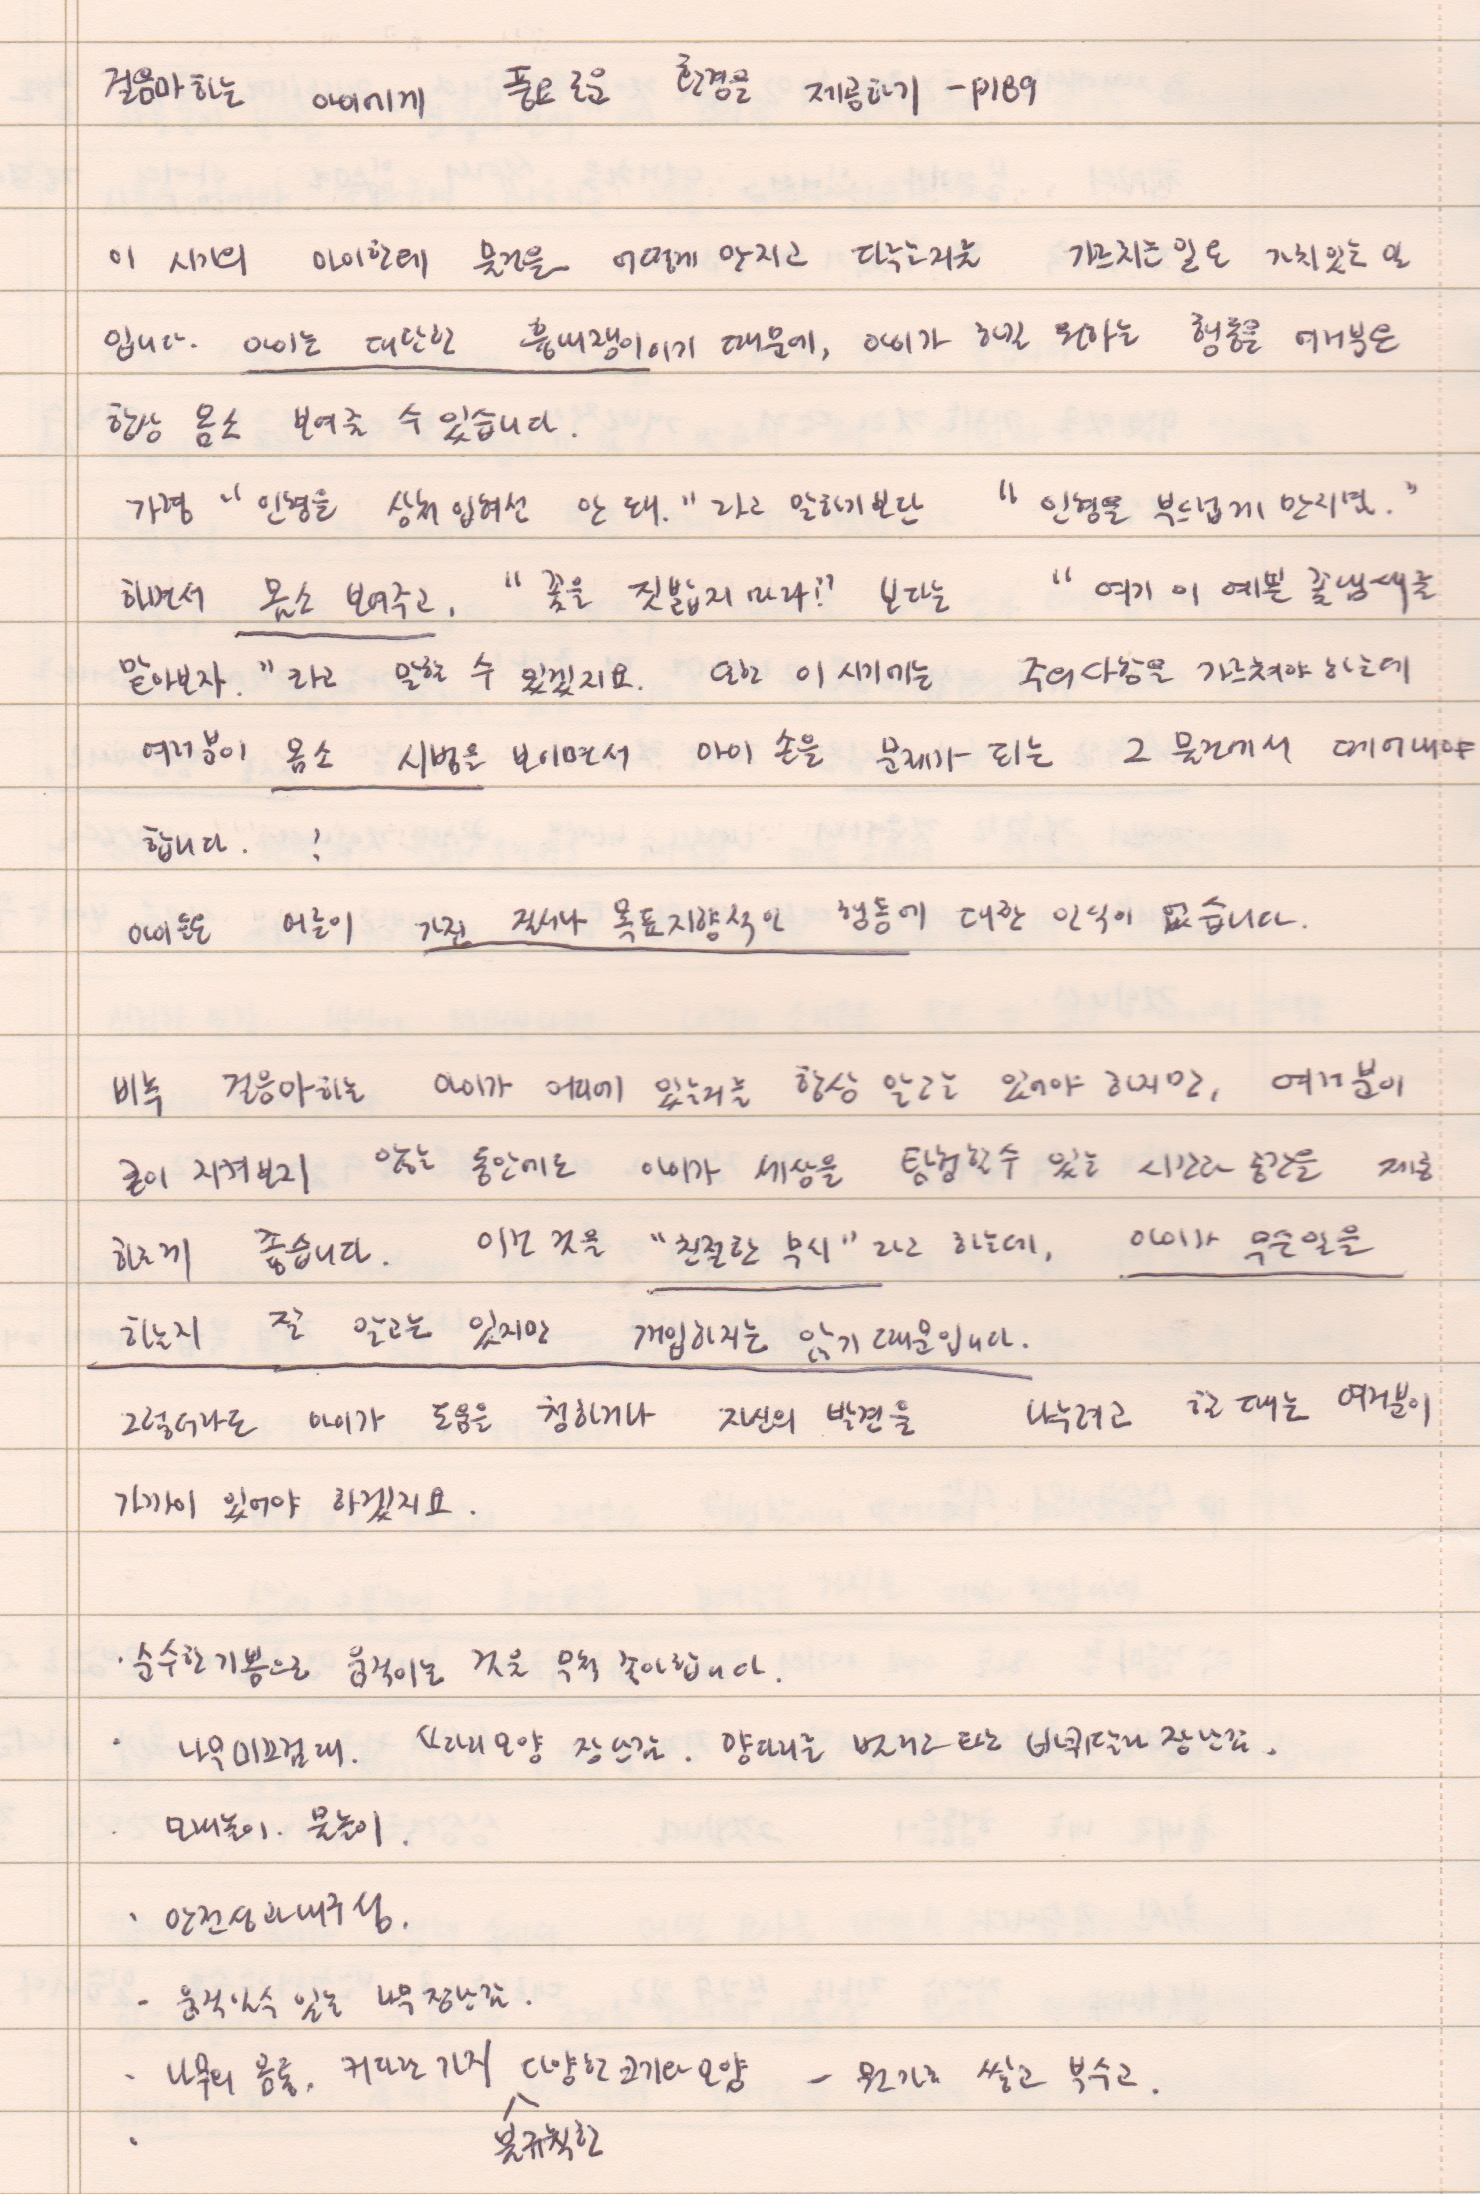 걸음마하는 아이에게 풍요로운 환경을 제공하기 - p189
이 시기의 아이한테 물건을 어떻게 만지고 다루는지를 가르치는일도 가치있는 일
입니다. 아이는 대단한 흉내쟁이이기 때문에, 아이가 하길 원하는 행동을 여러분은
항상 몸소 보여줄 수 있습니다.
가령 "인형을 상처입혀선 안 돼." 라고 말하기보단 "인형을 부드럽게 만지렴."
하면서 몸소 보여주고, "꽃을 짓밟지 마라!" 보다는 "여기 이 예쁜 꽃냄새를
맡아보자." 라고 말할 수 있겠지요. 또한 이 시기에는 주의사항을 가르쳐야 하는데
여러분이 몸소 시범을 보이면서 아이 손을 문제가 되는 그 물건에서 떼어내야
합니다. !
아이들은 어른이 가진 질서나 목표지향적인 행동에 대한 인식이 없습니다.
비록 걸음마하는 아이가 어디에 있는지를 항상 알고는 있어야 하지만, 여러분이
굳이 지켜보지 않는 동안에도 아이가 세상을 탐험할수 있는 시간과 공간을 제공
하는게 좋습니다. 이런 것을 "친절한 무시" 라고 하는데, 아이가 무슨일을
하는지 잘 알고는 있지만 개입하지는 않기 때문입니다.
그렇더라도 아이가 도움을 청하거나 자신의 발견을 나누려고 할 때는 여러분이
가까이 있어야 하겠지요.
· 순수한 기쁨으로 움직이는 것을 무척 좋아합니다.
· 나무미끄럼대. 모양 장난감. 양다리를 벌리고 타는 바퀴달린 장난감.
· 모래놀이. 물놀이.
· 안전성과 내구성.
- 움직일수 있는 나무 장난감.
· 나무의 몸통, 커다란 가지 다양한 크기와 모양 - 뭔가를 쌓고 부수고.
· 불규칙한